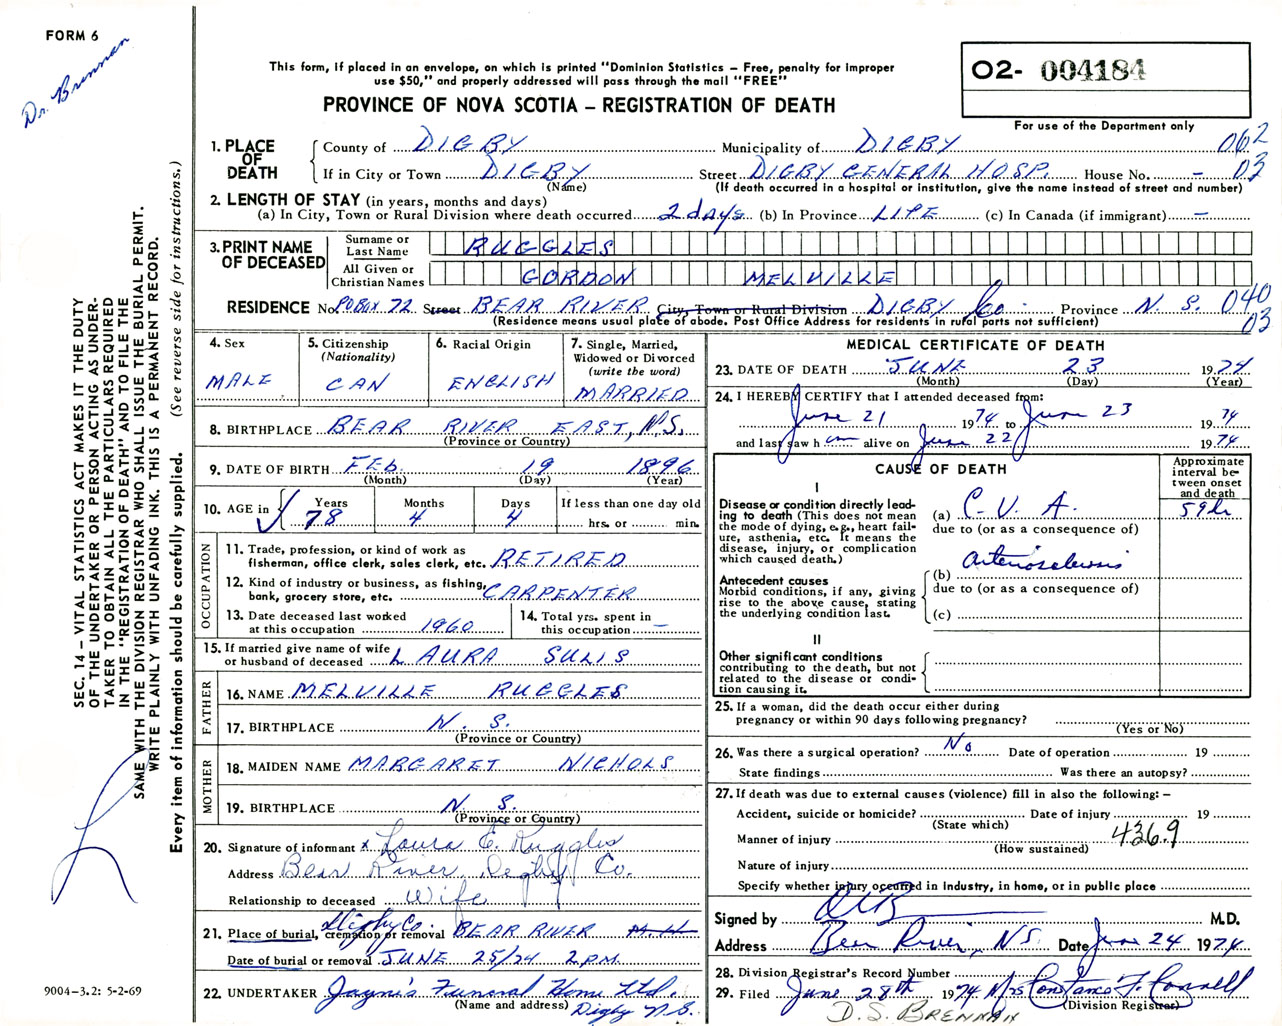 FORM 6
Dr. Brennan
This form, if placed in an envelope, on which is printed "Dominion Statistics – Free, penalty for improper
use $50," and properly addressed will pass through the mail "FREE"
PROVINCE OF NOVA SCOTIA – REGISTRATION OF DEATH
02- 004184
For use of the Department only
1. PLACE OF DEATH
County of DIGBY Municipality of DIGBY 062
If in City or Town DIGBY Street DIGBY GENERAL HOSP. House No. – 03
(Name) (If death occurred in a hospital or institution, give the name instead of street and number)
2. LENGTH OF STAY (in years, months and days)
(a) In City, Town or Rural Division where death occurred 2 days (b) In Province LIFE (c) In Canada (if immigrant) –
3. PRINT NAME OF DECEASED
Surname or Last Name RUGGLES
All Given or Christian Names GORDON MELVILLE
RESIDENCE No. PO BOX 72 Street BEAR RIVER City, Town or Rural Division DIGBY Co. Province N. S. 040
03
(Residence means usual place of abode. Post Office Address for residents in rural parts not sufficient)
4. Sex MALE
5. Citizenship (Nationality) CAN
6. Racial Origin ENGLISH
7. Single, Married, Widowed or Divorced (write the word) MARRIED
8. BIRTHPLACE BEAR RIVER EAST, N.S.
(Province or Country)
9. DATE OF BIRTH FEb. 19 1896
(Month) (Day) (Year)
10. AGE in Years 78 Months 4 Days 4 If less than one day old hrs. or min.
OCCUPATION
11. Trade, profession, or kind of work as
fisherman, office clerk, sales clerk, etc. RETIRED
12. Kind of industry or business, as fishing,
bank, grocery store, etc. CARPENTER
13. Date deceased last worked
at this occupation 1960
14. Total yrs. spent in
this occupation –
15. If married give name of wife
or husband of deceased LAURA SULIS
FATHER
16. NAME MELVILLE RUGGLES
17. BIRTHPLACE N. S.
(Province or Country)
MOTHER
18. MAIDEN NAME MARGARET NICHOLS
19. BIRTHPLACE N. S.
(Province or Country)
20. Signature of informant x Laura E. Ruggles
Address Bear River, Digby Co.
Relationship to deceased Wife
21. Place of burial, cremation or removal Digby Co. BEAR RIVER
Date of burial or removal JUNE 25/74 2 P.M.
22. UNDERTAKER Jayne's Funeral Home Ltd.
(Name and address) Digby N.S.
MEDICAL CERTIFICATE OF DEATH
23. DATE OF DEATH JUNE 23 1974
(Month) (Day) (Year)
24. I HEREBY CERTIFY that I attended deceased from:
June 21 1974 to June 23 1974
and last saw him alive on June 22 1974
CAUSE OF DEATH
Approximate interval between onset and death
I
Disease or condition directly leading to death (This does not mean the mode of dying, e.g., heart failure, asthenia, etc. It means the disease, injury, or complication which caused death.)
(a) C. V. A.
due to (or as a consequence of)
Antecedent causes
Morbid conditions, if any, giving rise to the above cause, stating the underlying condition last.
(b) Arteriosclerosis
due to (or as a consequence of)
(c)
II
Other significant conditions
contributing to the death, but not
related to the disease or condi-
tion causing it.
25. If a woman, did the death occur either during
pregnancy or within 90 days following pregnancy?
(Yes or No)
26. Was there a surgical operation? No Date of operation 19
State findings Was there an autopsy?
27. If death was due to external causes (violence) fill in also the following: –
Accident, suicide or homicide? Date of injury 19
(State which)
Manner of injury 436.9
(How sustained)
Nature of injury
Specify whether injury occurred in Industry, in home, or in public place
Signed by M.D.
Address Bear River, N.S. Date June 24 1974
28. Division Registrar's Record Number
29. Filed June 28th 1974 Mrs Constance F. Connell
(Division Registrar)
D. S. BRENNAN
SEC. 14 – VITAL STATISTICS ACT MAKES IT THE DUTY
OF THE UNDERTAKER OR PERSON ACTING AS UNDER-
TAKER TO OBTAIN ALL THE PARTICULARS REQUIRED
IN THE "REGISTRATION OF DEATH" AND TO FILE THE
SAME WITH THE DIVISION REGISTRAR WHO SHALL ISSUE THE BURIAL PERMIT.
WRITE PLAINLY WITH UNFADING INK. THIS IS A PERMANENT RECORD.
Every item of information should be carefully supplied. (See reverse side for instructions.)
9004-3.2: 5-2-69